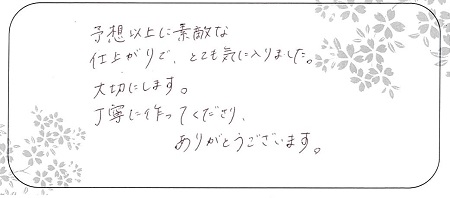 予想以上に素敵な
仕上がりで、とても気に入りました。
大切にします。
丁寧に作ってくださり、
ありがとうございます。